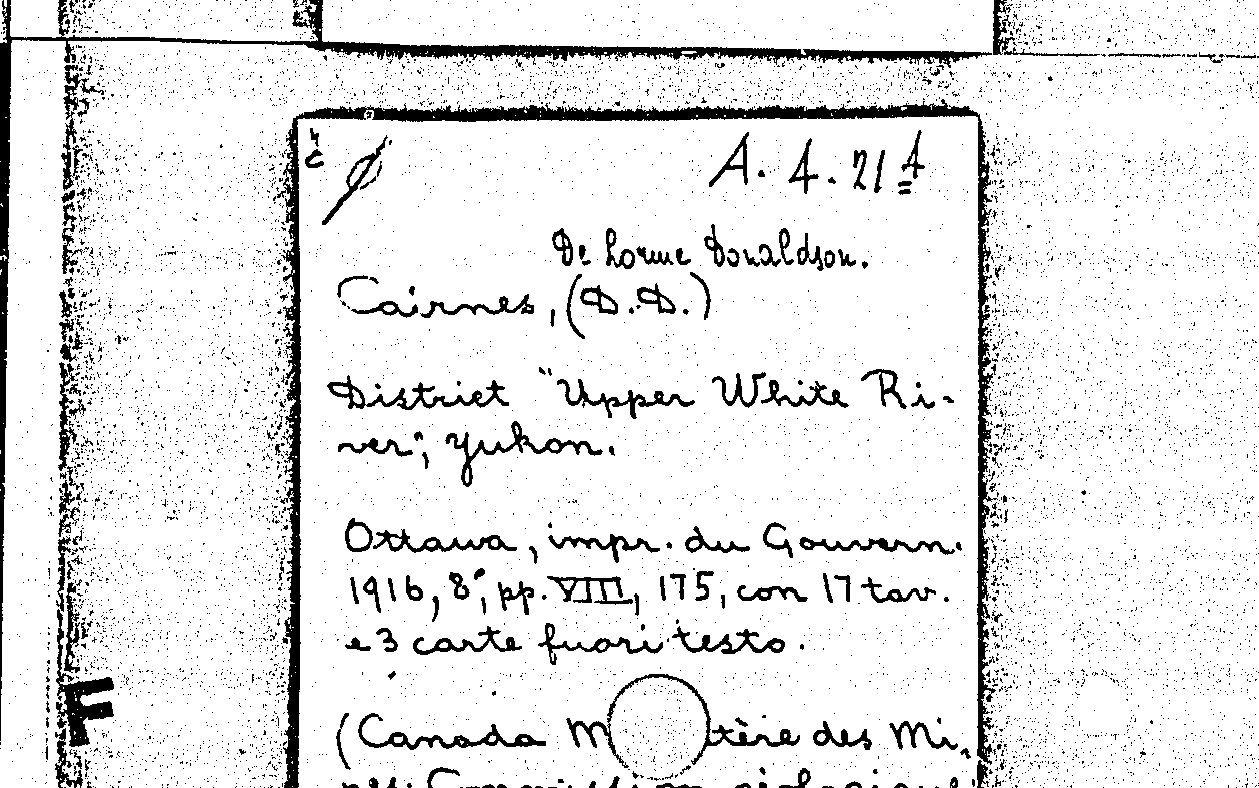 A. 4. 21 A
De Lorme Donaldson.
Cairnes, (D.D.)
District "Upper White Ri-
ver", Yukon.
Ottawa, impr. du Gouvern.
1916, 8°, pp. VIII, 175, con 17 tav.
e 3 carte fuori testo.
F
(Canada M tère des Mi-
nes: Commission géologique